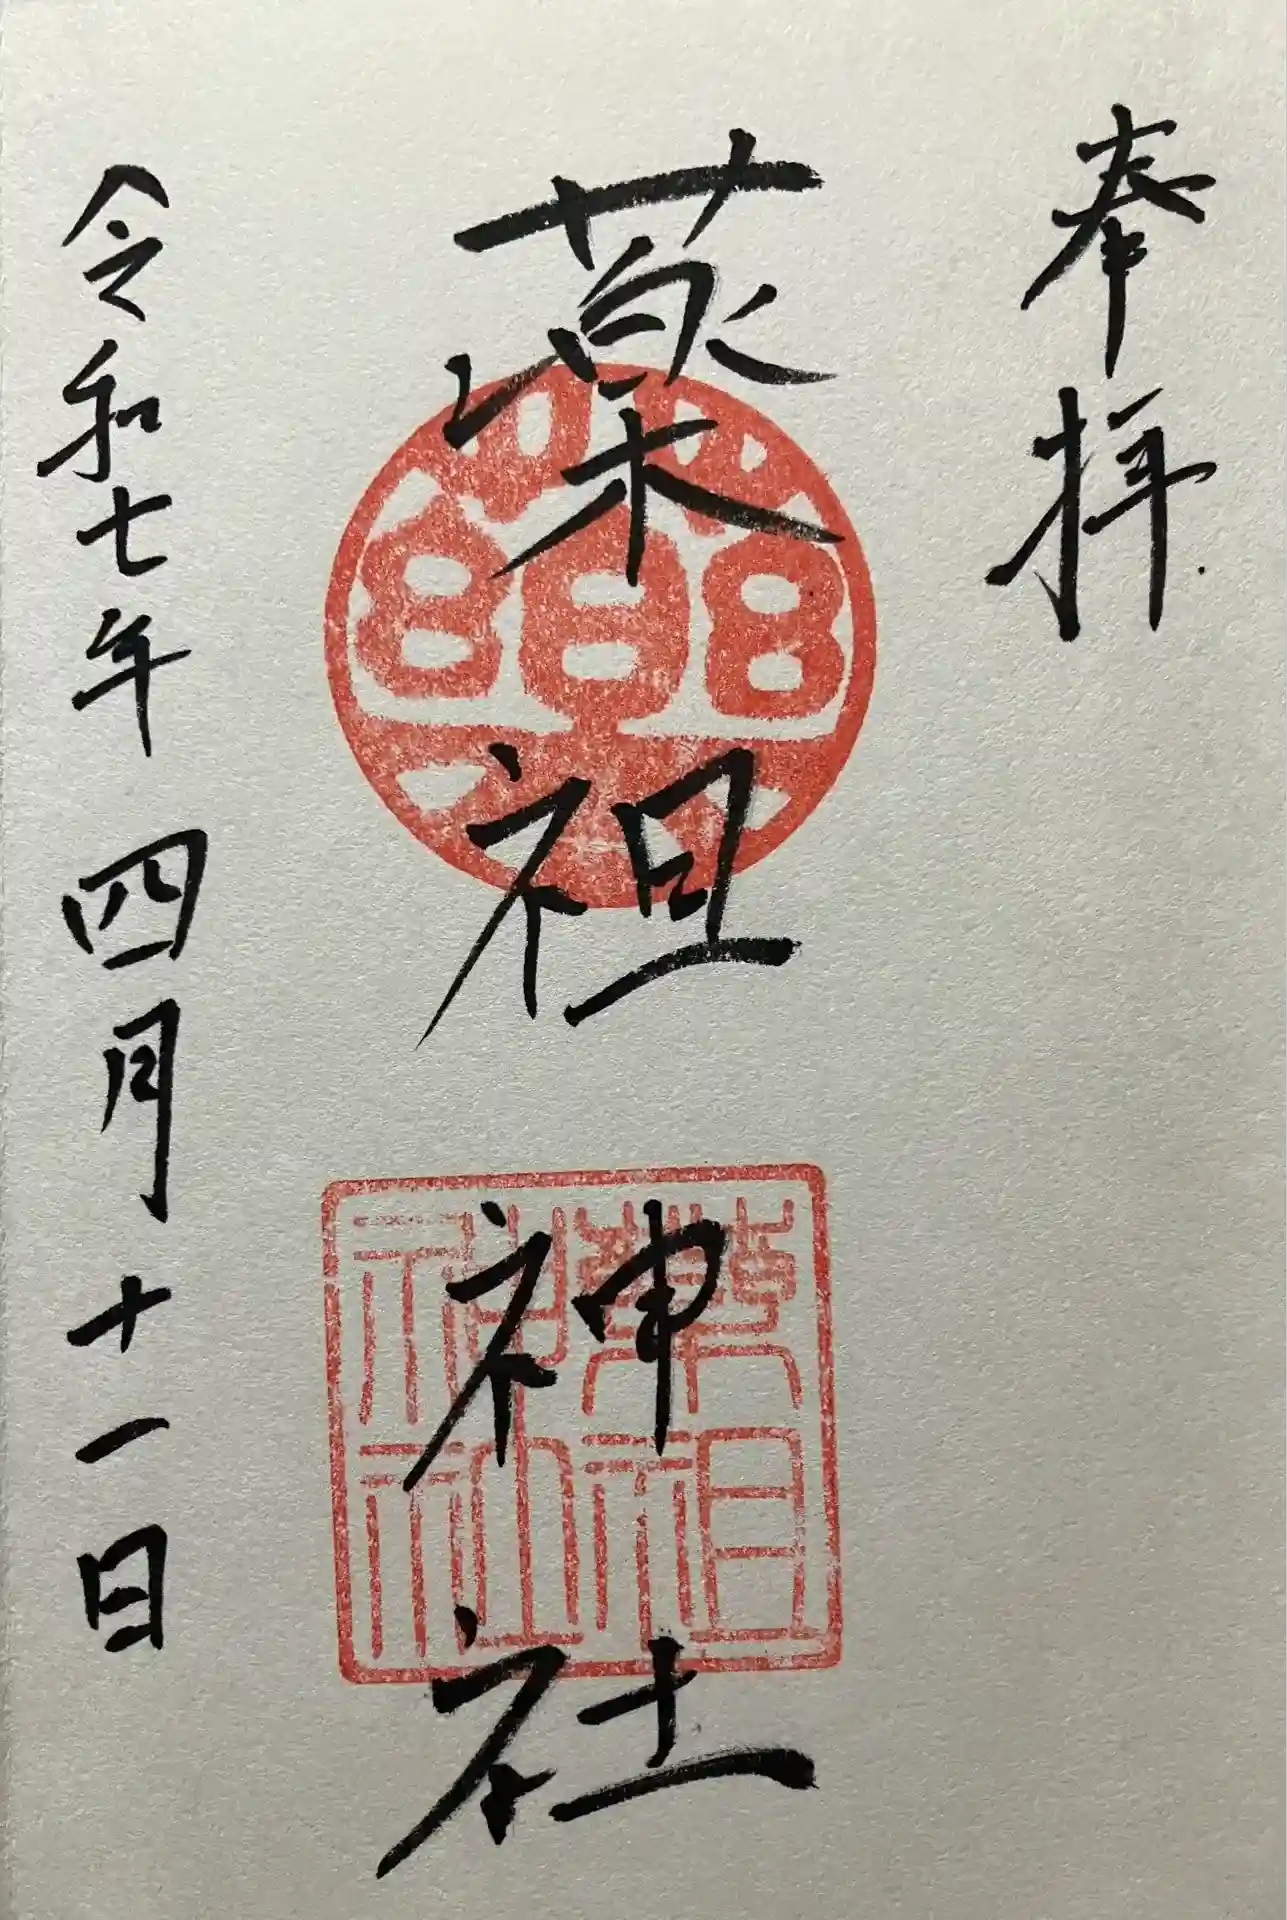 奉拝
薬祖神社
令和七年四月十一日
薬
薬祖神社